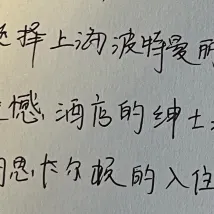 选择上海波特曼丽
憾,酒店的绅士
思·卡尔顿的入住